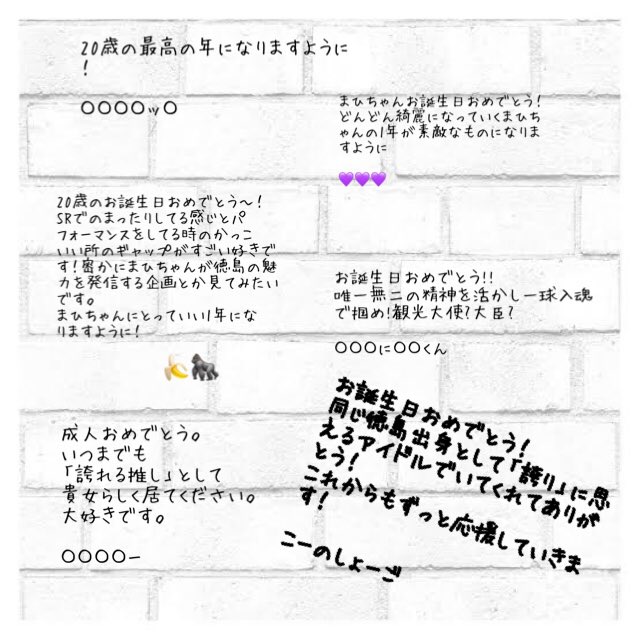 20歳の最高の年になりますように
!
〇〇〇〇ッ〇
まひちゃんお誕生日おめでとう!
どんどん綺麗になっていくまひち
ゃんの1年が素敵なものになりま
すように
💜💜💜
20歳のお誕生日おめでとう〜!
SRでのまったりしてる感じとパ
フォーマンスをしてる時のかっこ
いい所のギャップがすごい好きで
す!密かにまひちゃんが徳島の魅
力を発信する企画とか見てみたい
です。
まひちゃんにとっていい1年にな
りますように!
🍌🦍
お誕生日おめでとう!!
唯一無二の精神を活かし一球入魂
で掴め!観光大使?大臣?
〇〇〇に〇〇くん
成人おめでとう。
いつまでも
「誇れる推し」として
貴女らしく居てください。
大好きです。
〇〇〇〇ー
お誕生日おめでとう!
同じ徳島出身として「誇り」に思
えるアイドルでいてくれてありが
とう!
これからもずっと応援していきま
す!
こーのしょーご